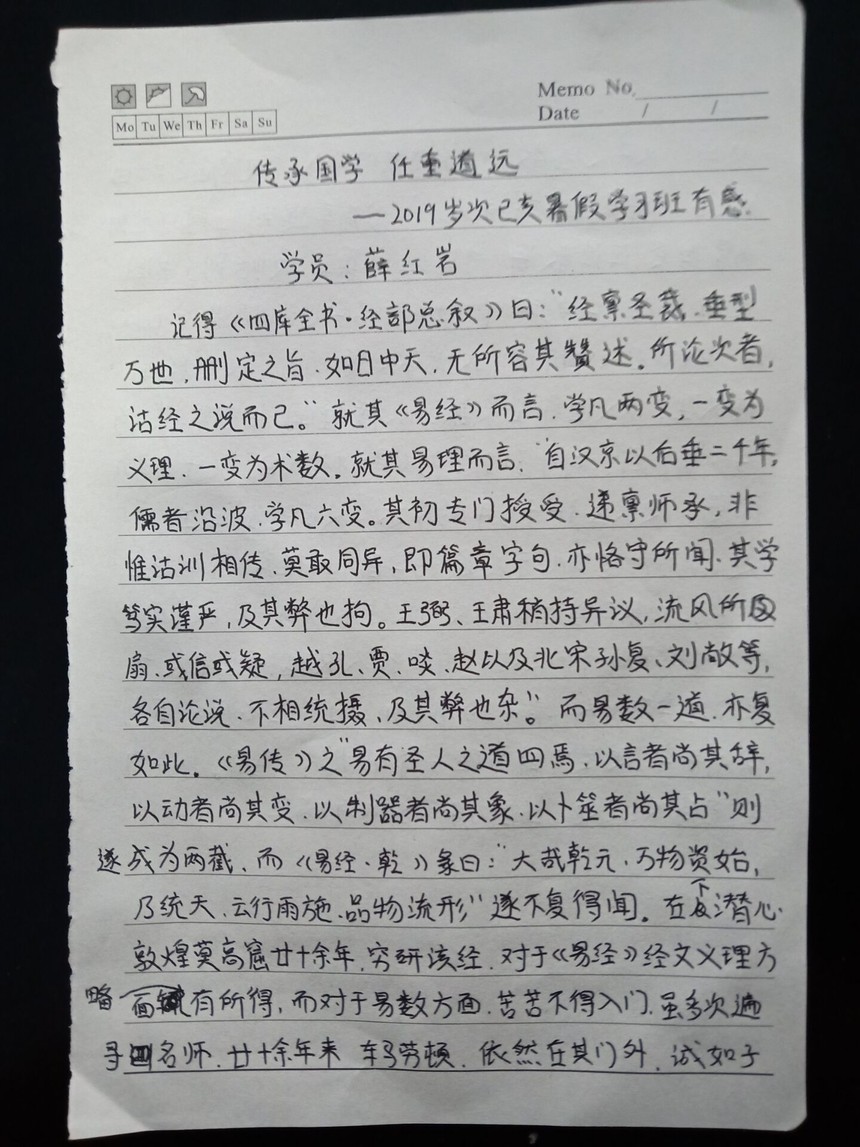 Memo No.
Date / /
Mo Tu We Th Fr Sa Su
传承国学 任重道远
—2019岁次己亥暑假学习班有感
学员：薛红岩
记得《四库全书·经部总叙》曰：“经禀圣裁、垂型
万世，删定之旨、如日中天，无所容其赞述。所论次者，
诂经之说而已。”就其《易经》而言、学凡两变，一变为
义理、一变为术数。就其易理而言、“自汉京以后垂二千年，
儒者沿波、学凡六变。其初专门授受、递禀师承，非
惟诂训相传、莫敢同异，即篇章字句、亦恪守所闻、其学
笃实谨严，及其弊也拘。王弼、王肃稍持异议，流风所
扇、或信或疑，越孔、贾、啖、赵以及北宋孙复、刘敞等，
各自论说、不相统摄、及其弊也杂”。而易数一道、亦复
如此。《易传》之“易有圣人之道四焉、以言者尚其辞，
以动者尚其变、以制器者尚其象、以卜筮者尚其占”则
遂成为两截、而《易经·乾》彖曰：“大哉乾元、万物资始，
乃统天、云行雨施、品物流形”遂不复得闻。在下潜心
敦煌莫高窟廿十余年、穷研该经、对于《易经》经文义理方
面略有所得，而对于易数方面、苦苦不得入门、虽多次遍
寻名师、廿十余年来 车马劳顿、依然在其门外、诚如子